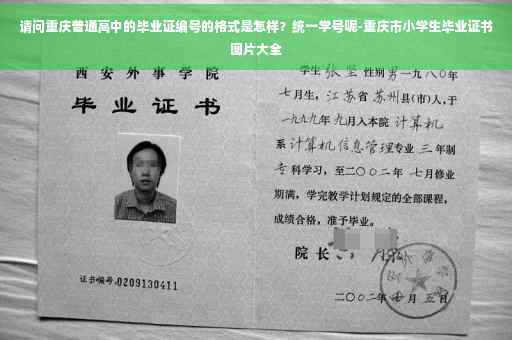 请问重庆普通高中的毕业证编号的格式是怎样？统一学号呢-重庆市小学生毕业证书
图片大全
西安外事学院
毕业证书
证书编号:0209130411
学生张坚性别男一九八〇年
七月生，江苏省苏州县(市)人，于
一九九九年九月入本院计算机
系计算机信息管理专业三年制
专科学习，至二〇〇二年七月修业
期满，学完教学计划规定的全部课程，
成绩合格，准予毕业。
院长
二〇〇二年 月五日